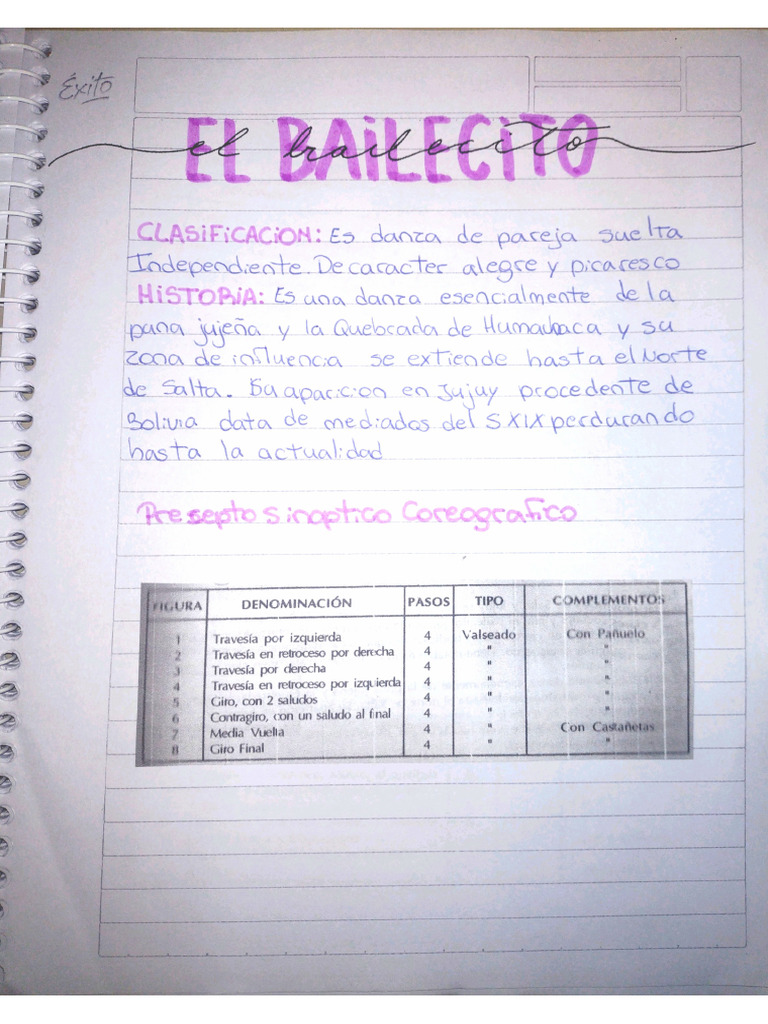 Éxito
EL BAiLECiTO
el bailecito
CLASiFiCACiON: Es danza de pareja suelta
Independiente. De caracter alegre y picaresco
HiSTORiA: Es una danza esencialmente de la
puna jujeña y la Quebrada de Humauaca y su
zona de influencia se extiende hasta el Norte
de Salta. Su aparicion en Jujuy procedente de
Bolivia data de mediados del S XIX perdurando
hasta la actualidad
Presepto Sinoptico Coreografico
FIGURA DENOMINACIÓN PASOS TIPO COMPLEMENTOS
1 Travesía por izquierda 4 Valseado Con Pañuelo
2 Travesía en retroceso por derecha 4 " "
3 Travesía por derecha 4 " "
4 Travesía en retroceso por izquierda 4 " "
5 Giro, con 2 saludos 4 " "
6 Contragiro, con un saludo al final 4 " "
7 Media Vuelta 4 " Con Castañetas
8 Giro Final 4 " "